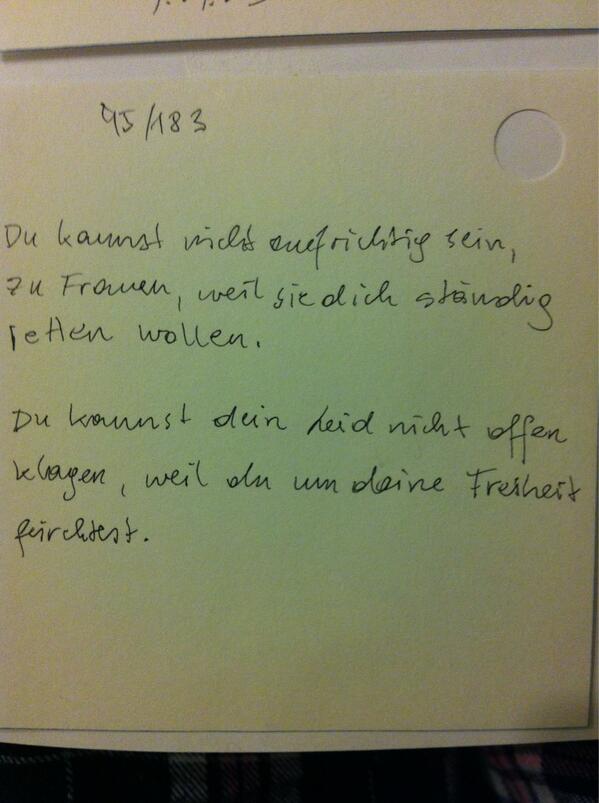 95/183
Du kannst nicht aufrichtig sein,
zu Frauen, weil sie dich ständig
retten wollen.
Du kannst dein Leid nicht offen
klagen, weil du um deine Freiheit
fürchtest.